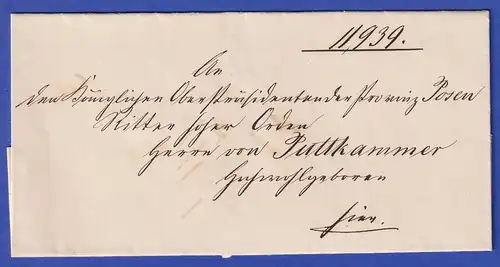 11,939.
An
den Königlichen Oberpräsidenten der Provinz Posen
Ritter hoher Orden
Herrn von Puttkammer
Hochwohlgeboren
hier.